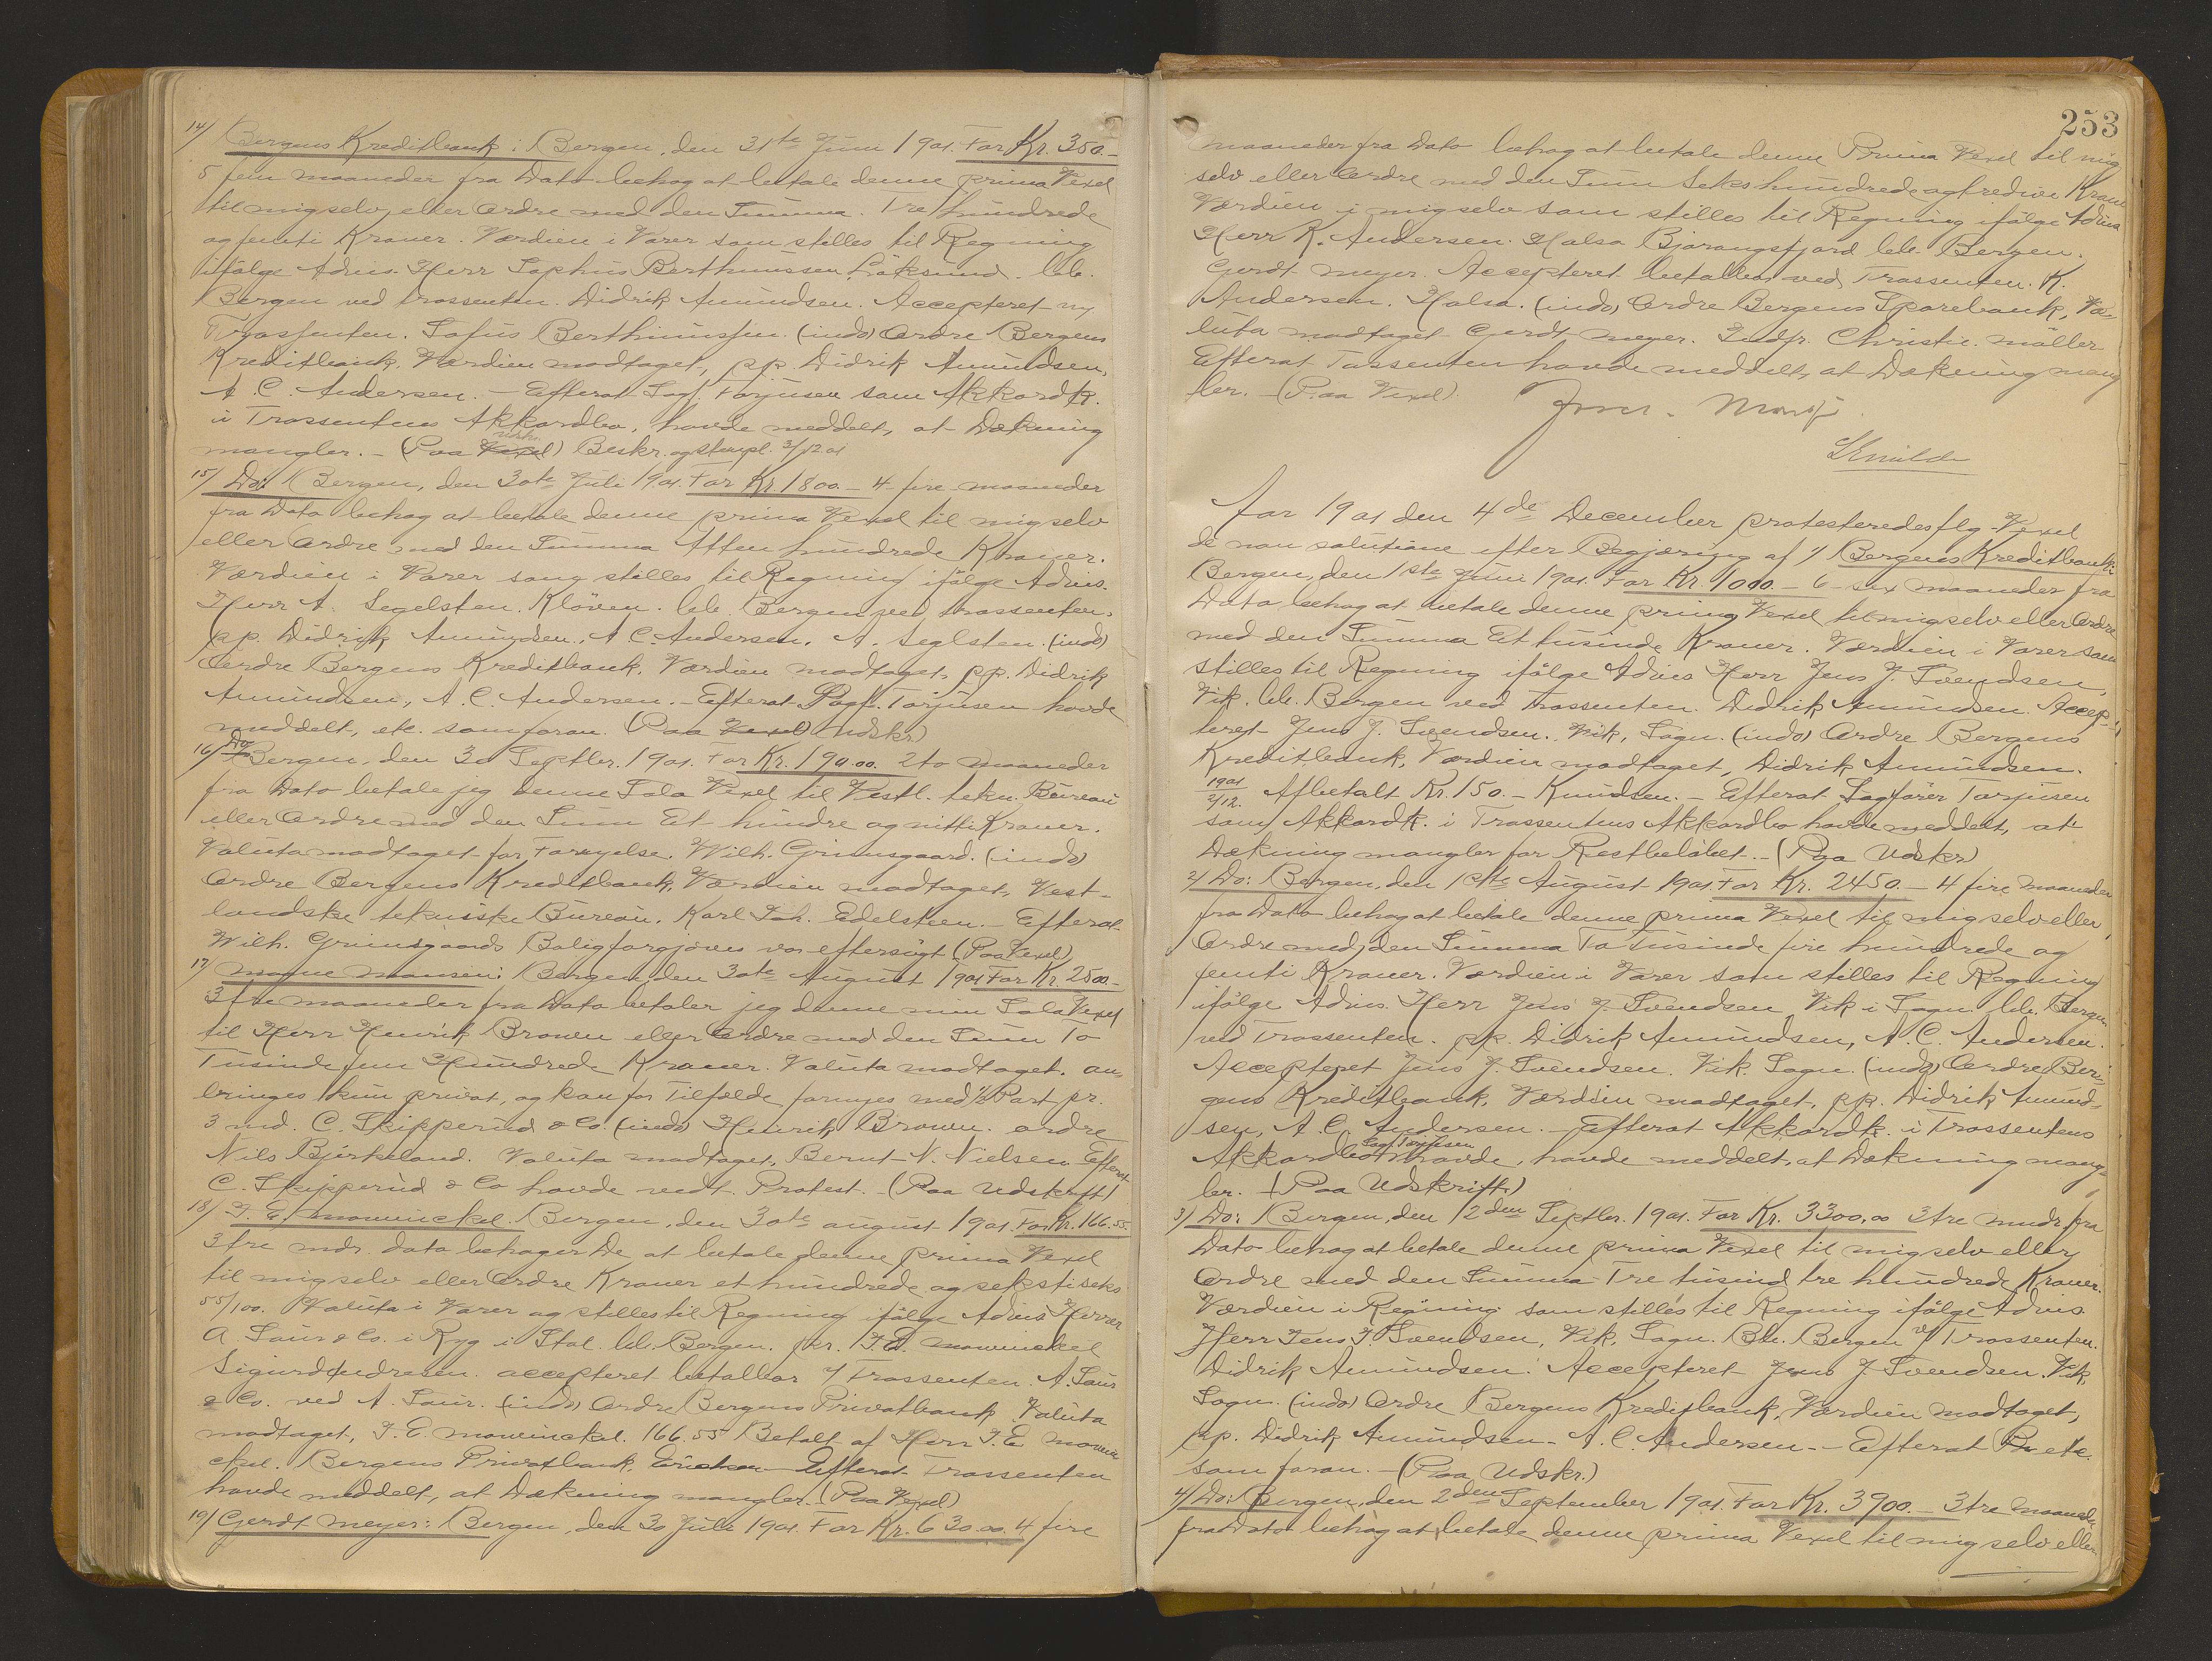 14/ Bergens Kreditbank: Bergen, den 31te Juni 1901. For Kr. 350.-
5 fem maaneder fra Dato behag at betale denne prima Vexel
til mig selv eller Ordre med den Summa. Tre hundrede
og femti Kroner. Værdien i Varer som stilles til Regning
ifølge Advis. Herr Sophus Berthinussen, betb.
Bergen ved trassenten. Didrik Amundsen. Accepteret
Trassenten. Sofus Berthinussen. (indo) Ordre Bergens
Kreditbank, Værdien modtaget, pp. Didrik Amundsen,
A. C. Andersen. – Efterat Sagf. Torjusen som Akkordk.
i Trassentens Akkordbo, havde meddelt, at Dækning
mangler. – (Paa Vexel) Beskr. og stempl. 3/12 01
15/ Do: Bergen, den 30te Juli 1901. For Kr. 1800.- 4 fire maaneder
fra Dato behag at betale denne prima Vexel til mig selv
eller Ordre med den Summa Atten hundrede Kroner.
Værdien i Varer som stilles til Regning ifølge Advis.
Herr A. Segelsten. Kløven. betb. Bergen ved trassenten.
pp. Didrik Amundsen., A C. Andersen. A. Seglsten. (indo)
Ordre Bergens Kreditbank, Værdien modtaget, pp. Didrik
Amundsen., A. C. Andersen. – Efterat Sagf. Torjusen havde
meddelt, etc. som foran. (Paa Vexel Udskr)
16/ Do Bergen, den 30 Septbr. 1901. For Kr. 190.00. 2 to maaneder
fra Dato betale jeg denne Sola Vexel til Vestl. tekn. Bureau
eller Ordre med den Sum Et hundre og nitti Kroner.
Valuta modtaget for Fornyelse. Wilh. Grimsgaard. (indo)
Ordre Bergens Kreditbank, Værdien modtaget, Vest-
landske tekniske Bureau. Karl Joh. Edelsteen. – Efterat
Wilh. Grimsgaards Bolig forgjæves var eftersøgt (Paa Vexel)
17/ Mogne Monsen: Bergen den 30te August 1901 For Kr. 2500.-
3 tre maaneder fra Dato betaler jeg denne min Sola Vexel
til Herr Henrik Brown eller Ordre med den Sum To
Tusinde fem Hundrede Kroner. Valuta modtaget. an-
bringes kun privat, og kan for Tilfælde fornyes med ½ Part pr.
3 md. C. Skipperud & Co. (indo) Henrik Brown. ordre
Nils Bjørkeland. Valuta modtaget, Bernt N. Nielsen. Efterat
C. Skipperud & Co havde vedt. Protest. – (Paa Udskrift)
18/ J. E. Mowinckel. Bergen, den 30te august 1901. For Kr. 166.55.
3 tre mdr. dato behager De at betale denne prima Vexel
til mig selv eller Ordre Kroner et hundrede og sekstiseks
55/100. Valuta i Varer og stilles til Regning ifølge Advis Herrer
A. Saur & Co. i Ryg i Stol. betb. Bergen. pr. J. E. Mowinckel
Sigurd Andresen. accepteret betalbar v/ Trassenten. A. Saur
& Co. ved A. Saur. (indo) Ordre Bergens Privatbank Valuta
modtaget, J. E. Mowinckel. 166.55 Betalt af Herr J. E. Mowin-
ckel. Bergens Privatbank. Erichsen Efterat Trassenten
havde meddelt, at Dækning mangler. (Paa Vexel)
19/ Gerdt Meyer: Bergen, den 30 Juli 1901. For Kr. 630.00. 4 fire
253
maaneder fra Dato behag at betale denne Prima Vexel til mig
selv eller Ordre med den Sum Sekshundrede og tredive Kroner
Værdien i mig selv som stilles til Regning ifølge Advis
Herr K. Andersen. Halsa Bjærangsfjord betb. Bergen.
Gerdt Meyer. Accepteret betalbar ved Trassenten. K.
Andersen. Halsa. (indo) Ordre Bergens Sparebank, Va-
luta modtaget Gerdt Meyer. Indfr. Christie. Møller
Efterat Tassenten havde meddelt, at Dækning mang
ler. – (Paa Vexel).
Aar 1901 den 4de December protesteredes flg. Vexel
de non solutione efter Begjæring af 1/ Bergens Kreditbank:
Bergen, den 1ste Juni 1901. For Kr. 1000.- 6 sex maaneder fra
Dato behag at betale denne prima Vexel til mig selv eller Ordre
med den Summa Et tusinde Kroner. Værdien i Varer som
stilles til Regning ifølge Advis Herr Jens J. Svendsen,
Vik. betb. Bergen ved Trassenten. Didrik Amundsen. Accep-
teret Jens J. Svendsen. Vik, Sogn. (indo) Ordre Bergens
Kreditbank, Værdien modtaget, Didrik Amundsen.
1901 2/12. Afbetalt Kr. 150.- Knudsen. – Efterat Sagfører Torjusen
som Akkordk. i Trassentens Akkordbo havde meddelt, at
Dækning mangler for Restbeløbet. – (Paa Udskr)
2/ Do: Bergen, den 1ste August 1901. For Kr. 2450.- 4 fire maaneder
fra Dato behag at betale denne prima Vexel til mig selv eller
Ordre med den Summa To Tusinde fire hundrede og
femti Kroner. Værdien i Varer som stilles til Regning
ifølge Advis. Herr Jens J. Svendsen Vik i Sogn. betb. Bergen
ved Trassenten. pp. Didrik Amundsen, A. C. Andersen.
Accepteret Jens J. Svendsen. Vik. Sogn. (indo) Ordre Ber-
gens Kreditbank, Værdien modtaget, pp. Didrik Amund-
sen, A. C. Andersen. – Efterat Akkordk. i Trassentens
Akkordbo Sagf. Torjusen havde, havde meddelt, at Dækning mang-
ler. – (Paa Udskrift)
3/ Do: Bergen, den 12den Septbr. 1901. For Kr. 3300,00 3 tre mndr. fra
Dato behag at betale denne prima Vexel til mig selv eller
Ordre med den Summa Tre tusind tre hundrede Kroner.
Værdien i Regning som stilles til Regning ifølge Advis.
Herr Jens J. Svendsen, Vik, Sogn. Btb. Bergen v/ Trassenten.
Didrik Amundsen. Accepteret Jens J. Svendsen. Vik,
Sogn. (indo) Ordre Bergens Kreditbank, Værdien modtaget,
pp. Didrik Amundsen. A. C. Andersen. – Efterat etc.
som foran. – (Paa Udskr.)
4/ Do: Bergen, den 2den September 1901. For Kr. 3900.- 3 tre maaneder
fra Dato behag at betale denne prima Vexel til mig selv eller